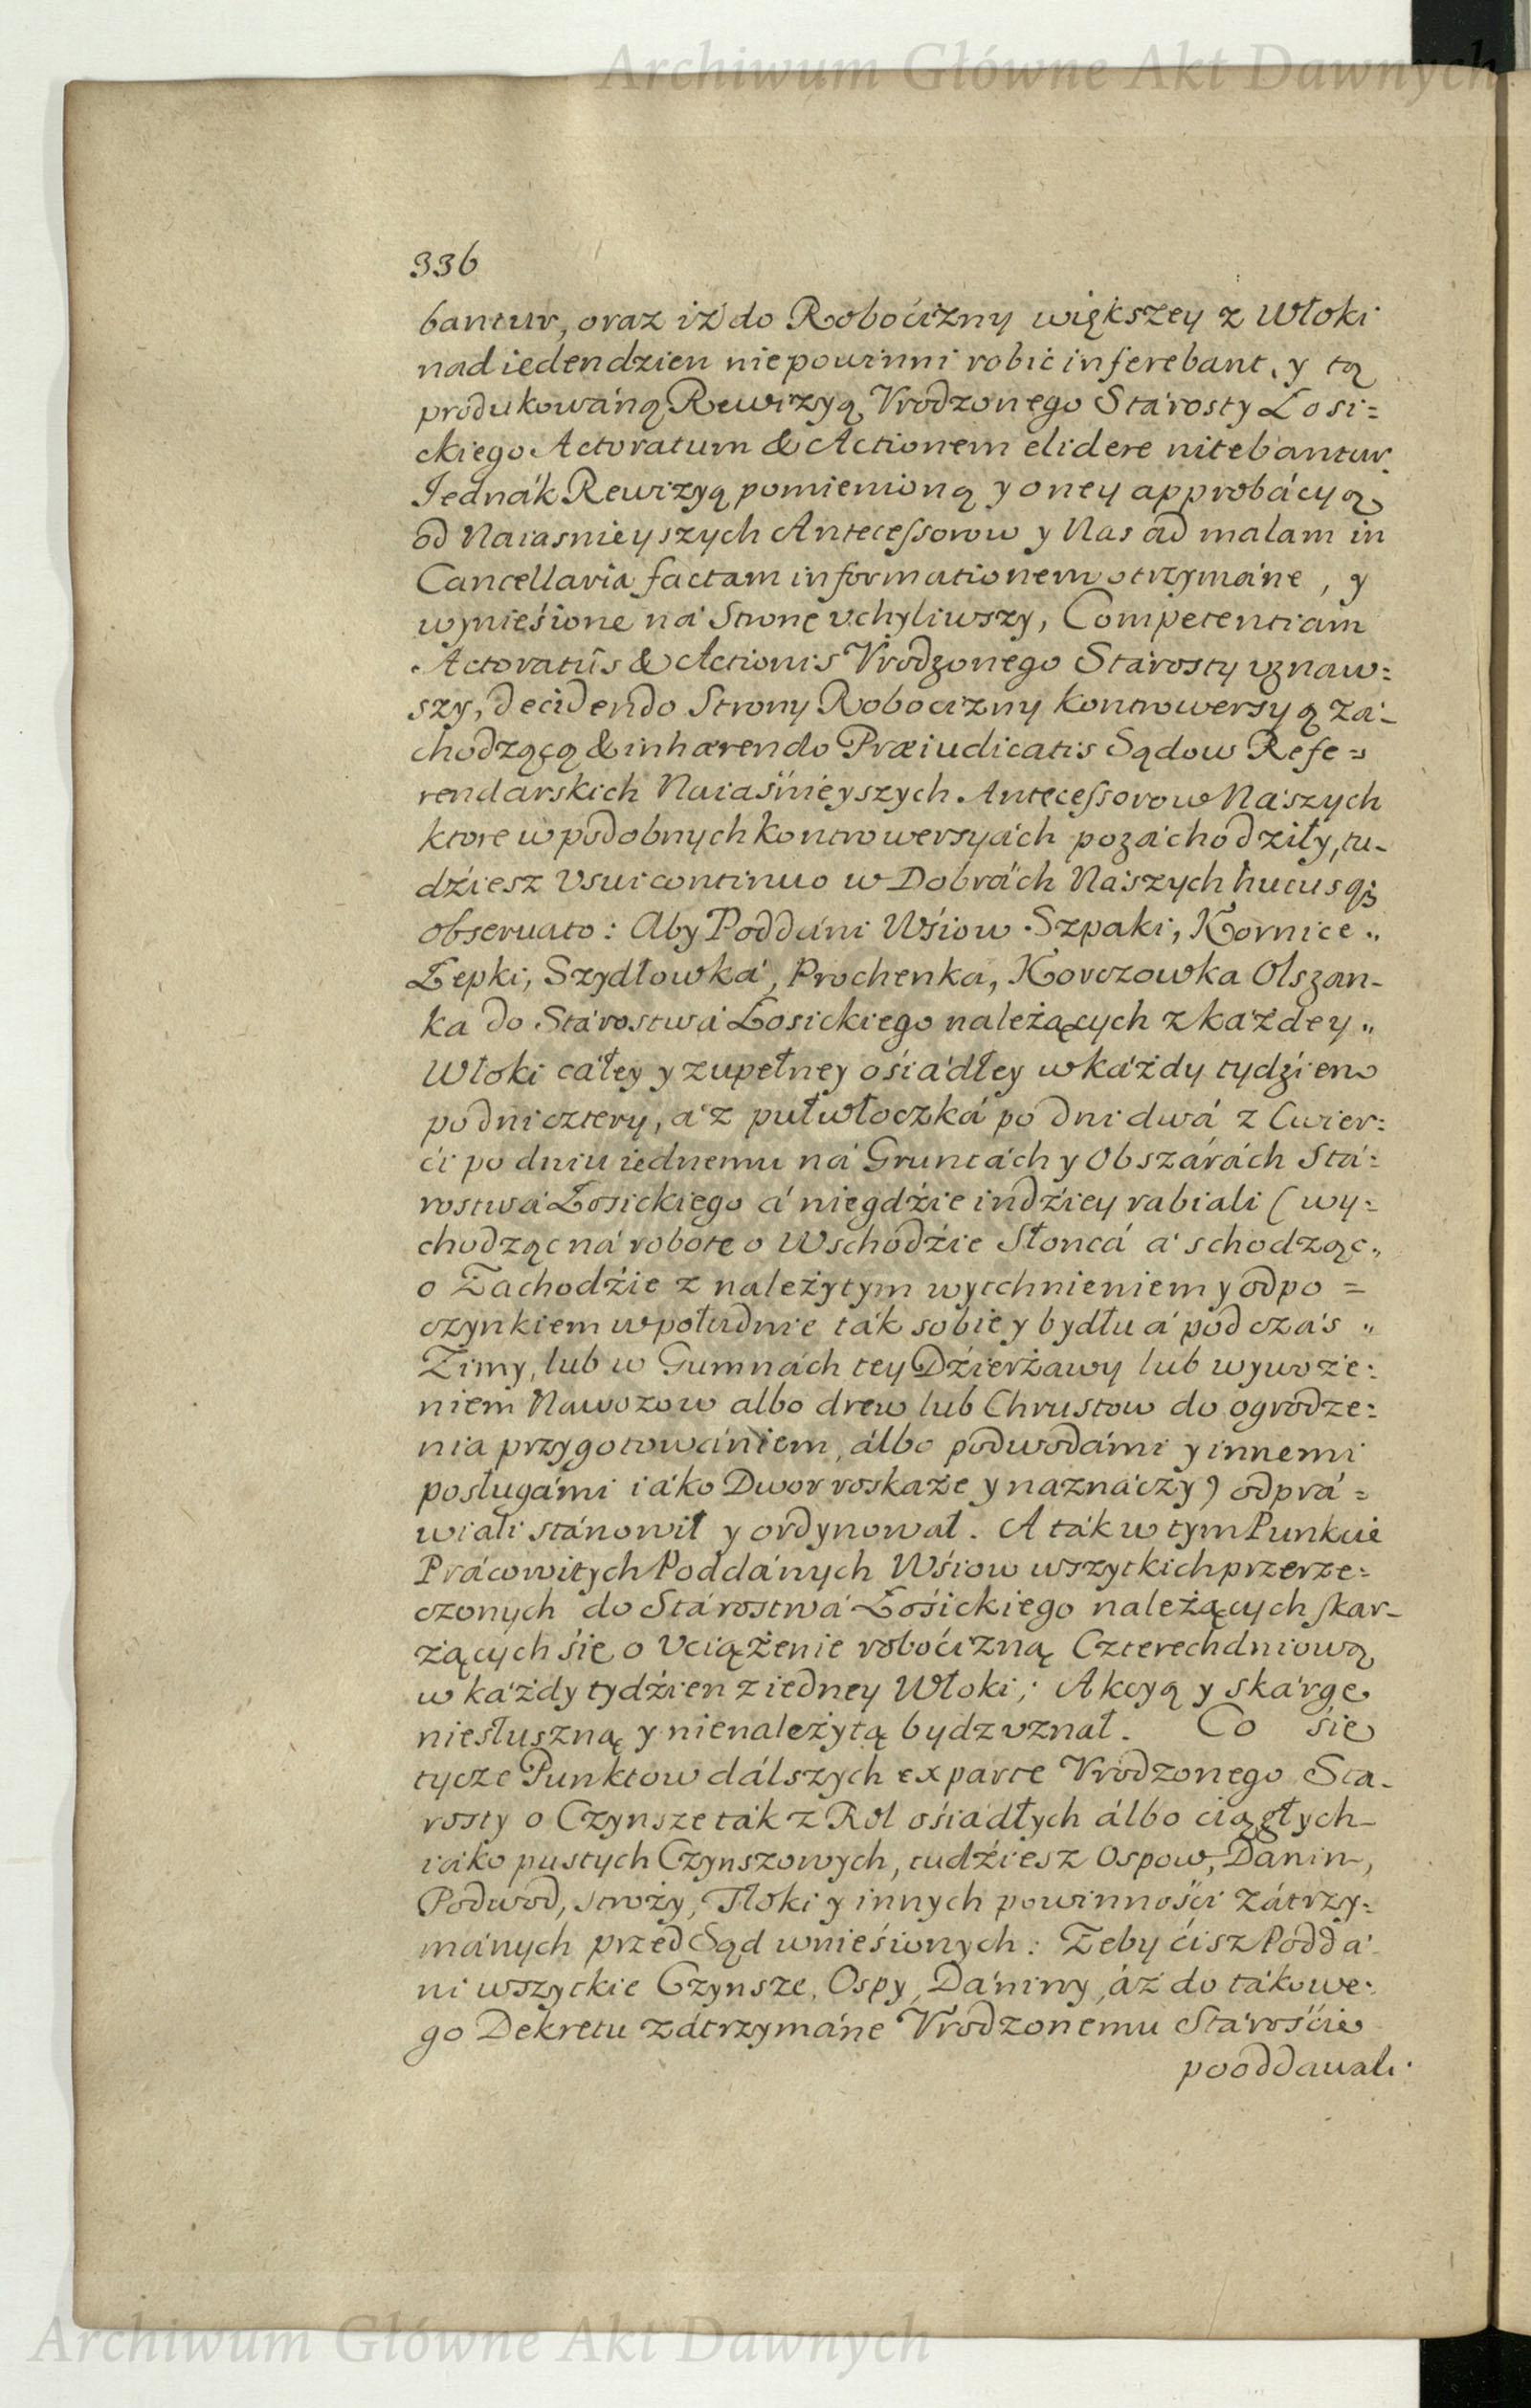 Archiwum Główne Akt Dawnych
336
bantur, oraz iż do Robocizny większey z Włoki
nad ieden dzien nie powinni robić inferebant, y tą
produkowáną Rewizyą Vrodzonego Starosty Łosi=
ckiego Actoratum & Actionem elidere nitebantur.
Jednák Rewizyą pomienioną y oney approbácyą
od Naiasnieyszych Antecessorow y Nas ad malam in
Cancellaria factam informationem otrzymáne, y
wynieśione ná Stronę vchyliwszy, Competentiam
Actoratûs & Actionis Vrodzonego Stárosty vznaw=
szy, decidendo Strony Robocizny kontrowersyą zá-
chodzącą & inhærendo Præiudicatis Sądow Refe=
rendarskich Naiaśnieyszych Antecessorow Nászych
ktore w podobnych kontrowersyách pozáchodziły, tu-
dźiesz Vsui continuo w Dobrách Nászych hucusqȝ
observato: Aby Poddáni Wśiow Szpaki, Kornice „
Łepki, Szydłowká, Prochenka, Korczowka Olszan-
ka do Stárostwá Łosickiego należących z káżdey „
Włoki cáłey y zupełney ośiádłey w káżdy tydźien
po dni cztery, á z pułwłoczká po dni dwá z Cwier=
ći po dniu iednemu ná Gruntách y Obszárách Stá=
rostwá Łosickiego á niegdźie indźiey rabiali ( wy=
chodząc ná robotę o Wschodźie Słoncá á schodząc „
o Zachodźie z należytym wytchnieniem y odpo =
czynkiem w południe ták sobie y bydłu á pod czás „
Zimy, lub w Gumnách tey Dźierżawy lub wywoże=
niem Nawozow albo drew lub Chrustow do ogrodze=
nia przygotowániem, álbo podwodámi y innemi
posługámi iáko Dwor roskaże y náznáczy) odprá =
wiali stánowił y ordynował. A ták w tym Punkcie
Prácowitych Poddánych Wśiow wszytkich przerze=
czonych do Stárostwá Łośickiego należących skar-
żących śię o Vciążenie roboćizną Czterechdniową
w káżdy tydźien z iedney Włoki; Akcyą y skárgę
niesłuszną y nienależytą bydz vznał. Co się
tycze Punktow dálszych ex parte Vrodzonego Sta-
rosty o Czynsze ták z Rol ośiadłych álbo ciągłych
iáko pustych Czynszowych, tudźiesz Ospow, Danin,
Podwod, stroży, Tłoki y innych powinnośći zátrzy=
mánych przed Sąd wnieśionych: Żeby ćisz Poddá
ni wszytkie Czynsze, Ospy, Dániny, áż do tákowe=
go Dekretu zátrzymáne Vrodzonemu Stárośćie
pooddawali
Archiwum Główne Akt Dawnych